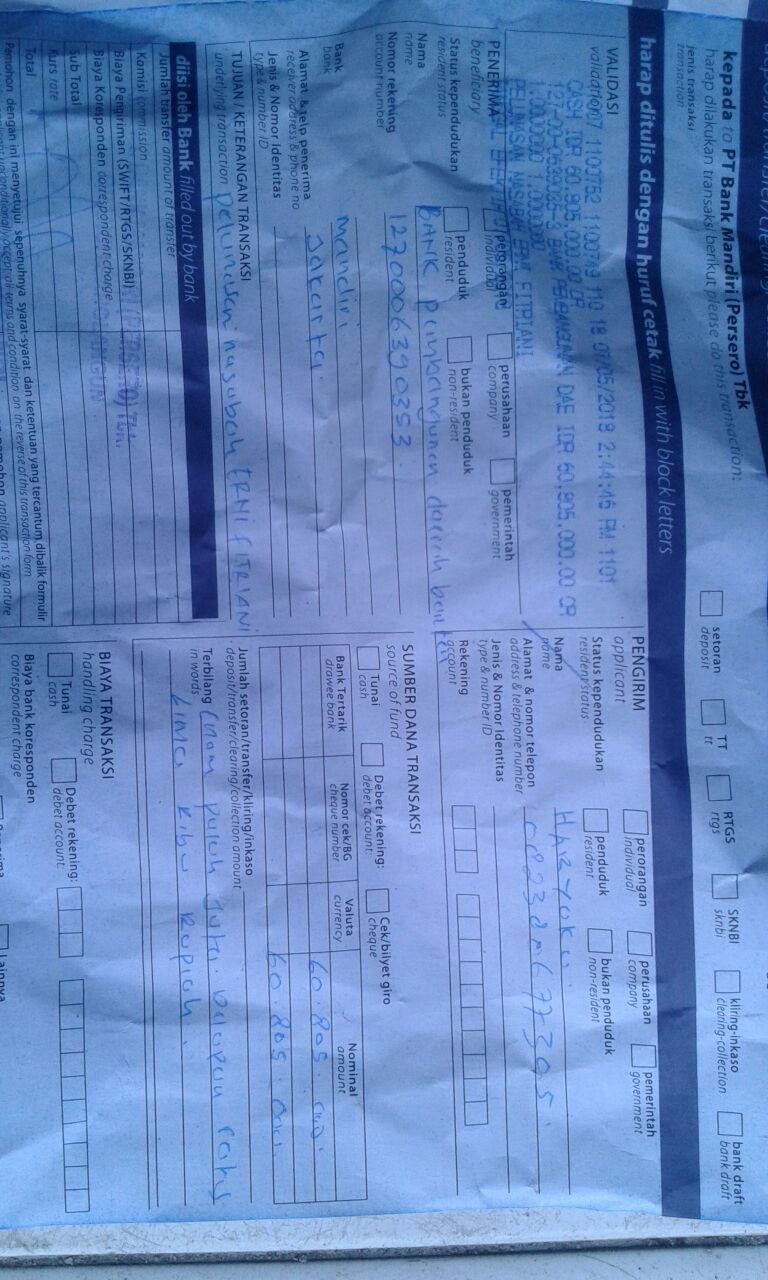 kepada to PT Bank Mandiri (Persero) Tbk
harap dilakukan transaksi berikut please do this transaction:
jenis transaksi
transaction
setoran
deposit
TT
tt
RTGS
rtgs
SKNBI
sknbi
kliring-inkaso
clearing-collection
bank draft
bank draft
harap ditulis dengan huruf cetak fill in with block letters
VALIDASI
validation
1100752 1100749 110 18 07/05/2018 2:44:46 PM 1101
CASH IDR 60.805.000.00 CR
BANK PEMBANGUNAN DAE IDR 60.805.000.00 CR
PELUNASAN NASABAH ERNI FITRIANI
PENERIMA
beneficiary
perorangan
individual
perusahaan
company
pemerintah
government
Status kependudukan
resident status
penduduk
resident
bukan penduduk
non-resident
Nama
name
BANK pembangunan daerah banten
Nomor rekening
account number
1270006390353
Bank
bank
Mandiri
Alamat & telp penerima
receiver address & phone no
Jakarta.
Jenis & Nomor Identitas
type & number ID
TUJUAN / KETERANGAN TRANSAKSI
underlying transaction
pelunasan nasabah ERNI FITRIANI
diisi oleh Bank filled out by bank
Jumlah transfer amount of transfer
Komisi commission
Biaya Pengiriman (SWIFT/RTGS/SKNBI)
Biaya Koresponden correspondent charge
Sub Total
Kurs rate
Total
Pemohon dengan ini menyetujui sepenuhnya syarat-syarat dan ketentuan yang tercantum dibalik formulir
accept all terms and condition on the reverse of this transaction form
applicant's signature
PENGIRIM
applicant
perorangan
individual
perusahaan
company
pemerintah
government
Status kependudukan
resident status
penduduk
resident
bukan penduduk
non-resident
Nama
name
HARYOKO.
Alamat & nomor telepon
address & telephone number
Jenis & Nomor Identitas
type & number ID
Rekening
account
SUMBER DANA TRANSAKSI
source of fund
Tunai
cash
Debet rekening:
debet account:
Cek/bilyet giro
cheque
Bank Tertarik
drawee bank
Nomor cek/BG
cheque number
Valuta
currency
Nominal
amount
60.805.000.
60.805.000.
Jumlah setoran/transfer/kliring/inkaso
deposit/transfer/clearing/collection amount
Terbilang
in words
Enam puluh Juta. Delapan ratus
Lima Ribu Rupiah.
BIAYA TRANSAKSI
handling charge
Tunai
cash
Debet rekening:
debet account:
Biaya bank koresponden
correspondent charge